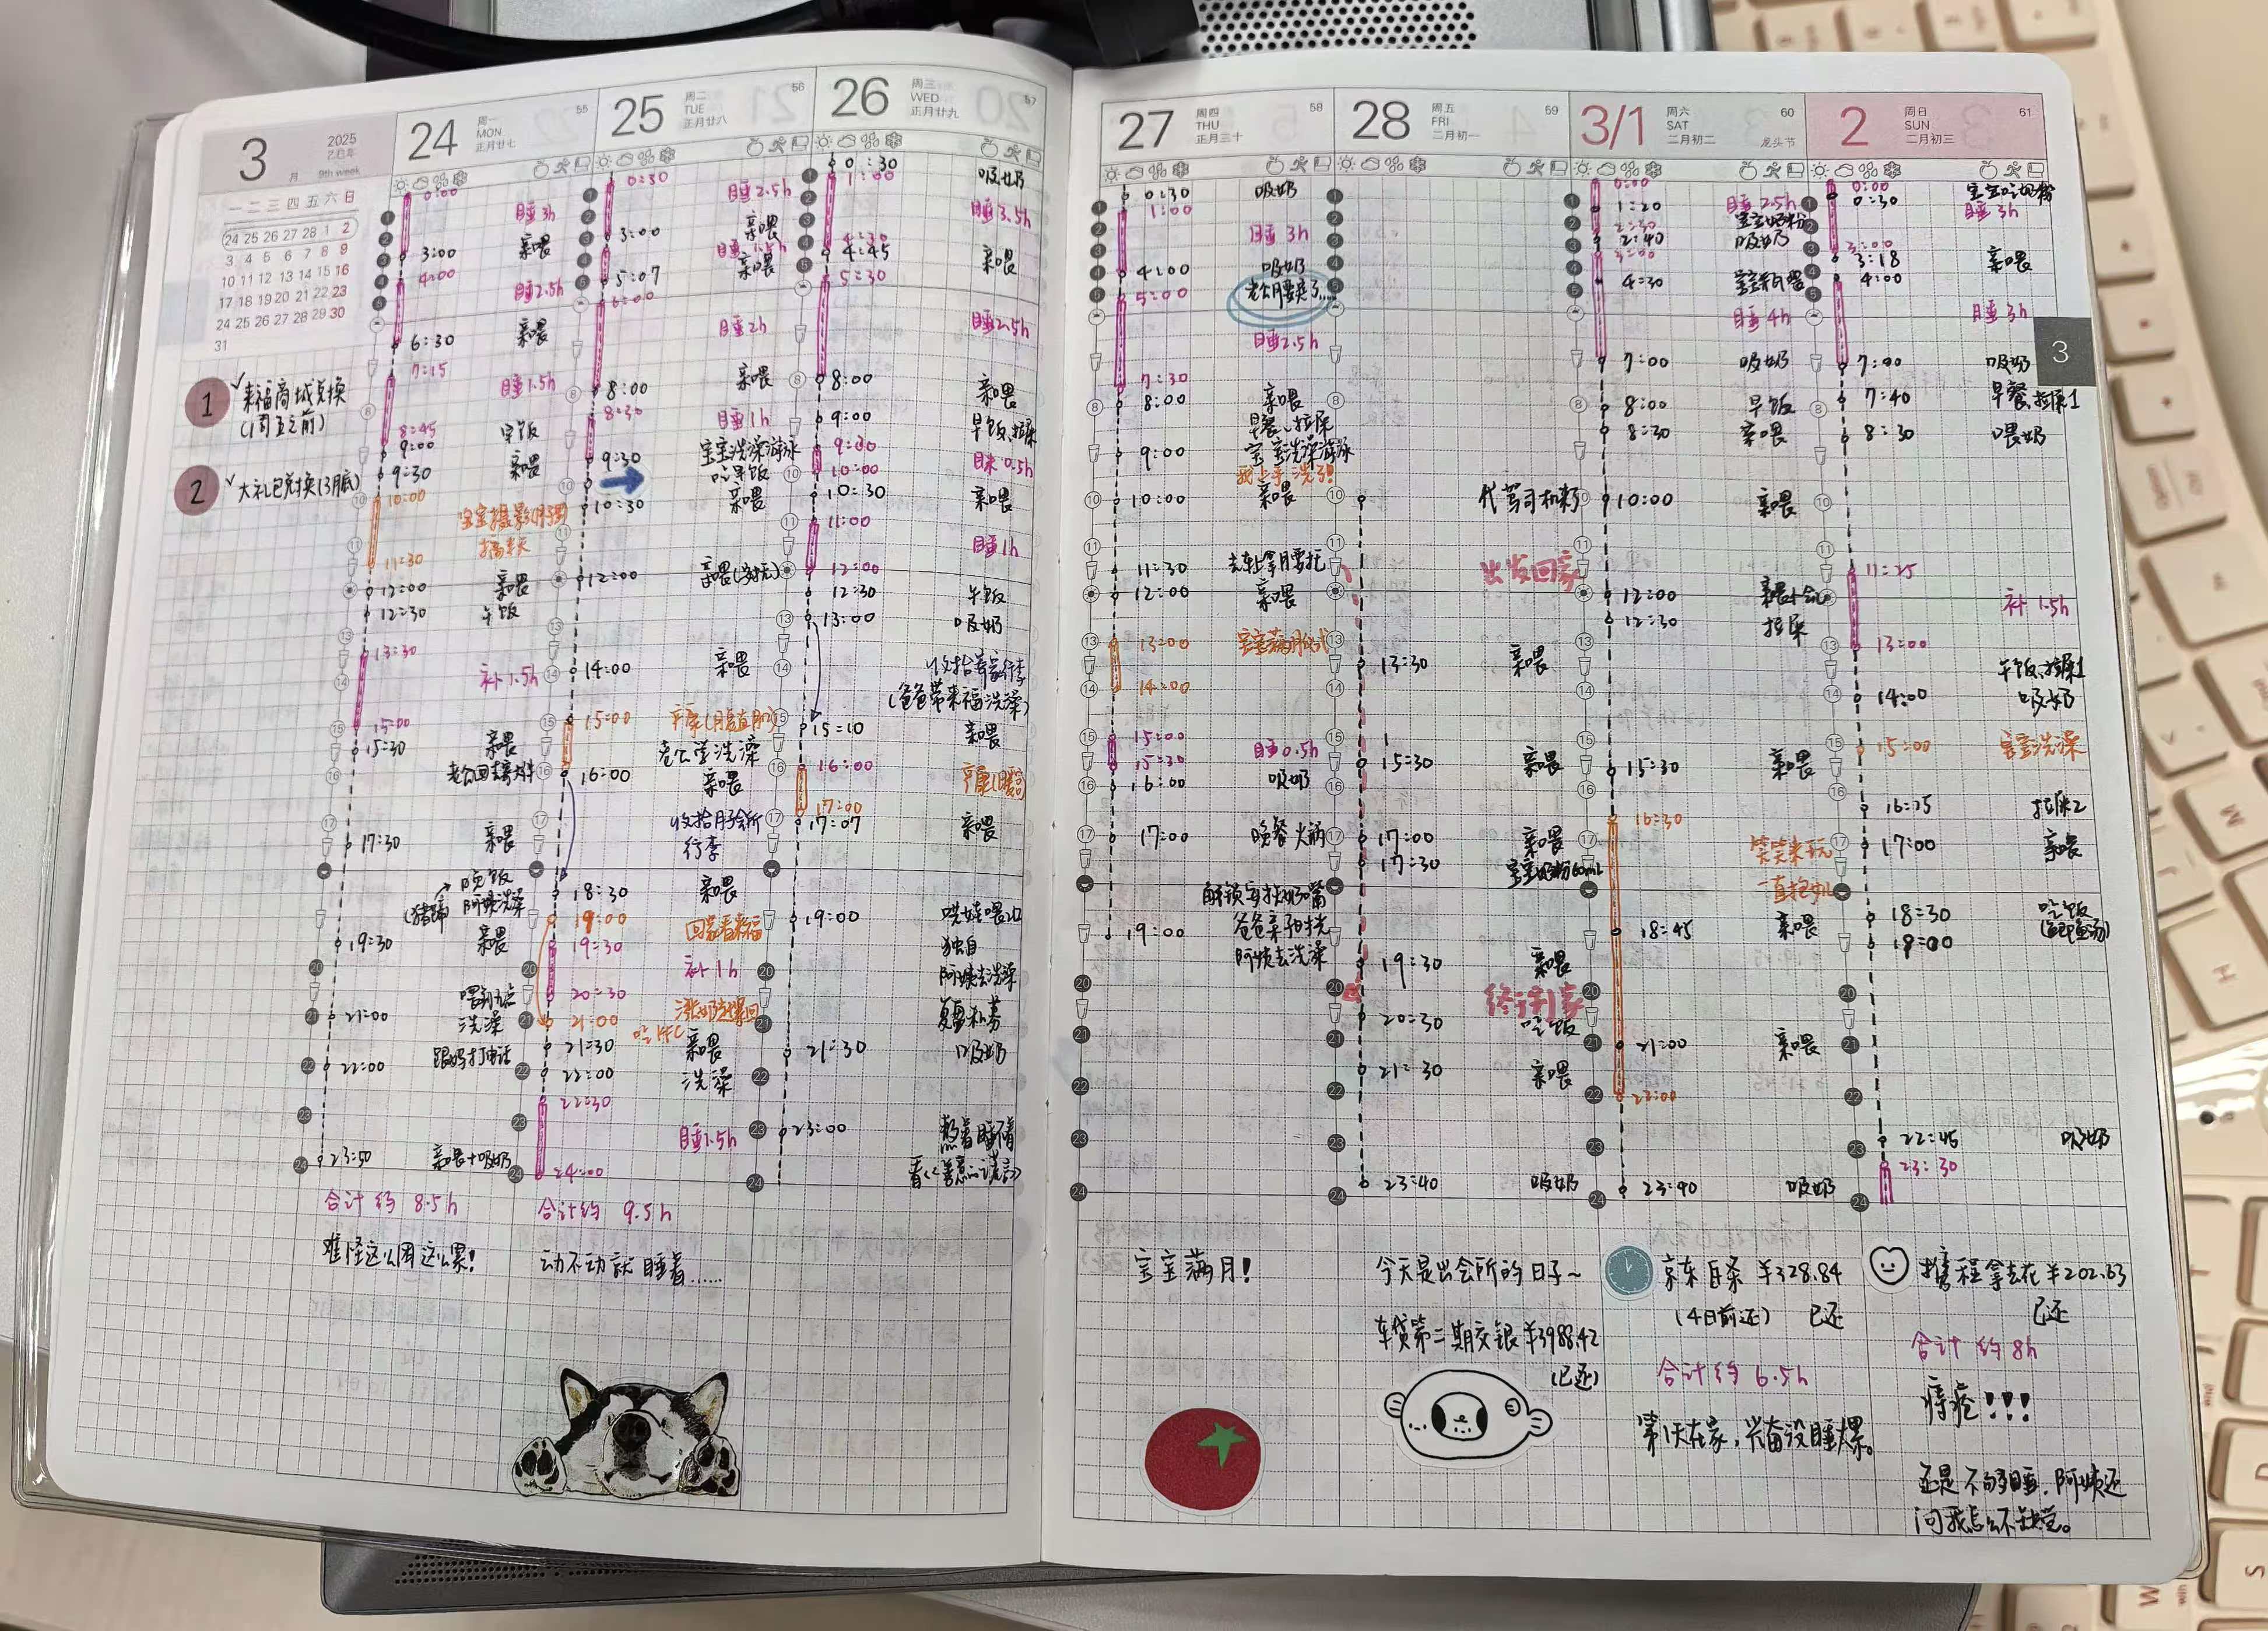 3
月
2025
乙巳年
9th week
一 二 三 四 五 六 日
24 25 26 27 28 1 2
3 4 5 6 7 8 9
10 11 12 13 14 15 16
17 18 19 20 21 22 23
24 25 26 27 28 29 30
31
1 来福商城兑换
(周五之前)
2 大礼包兑换(3月底)
24 周一 MON 正月廿七 55
0:00
睡3h
3:00 亲喂
4:00
睡2.5h
6:30 亲喂
7:15
睡1.5h
8:45
9:00 早饭
9:30 亲喂
10:00
11:30
12:00 亲喂
12:30 午饭
13:30
补1.5h
15:00
15:30 亲喂
17:30 亲喂
晚饭
阿姨洗澡
19:30 亲喂
21:00 洗澡
22:00 跟妈打电话
23:50 亲喂+吸奶
合计约8.5h
难怪这么困这么累!
25 周二 TUE 正月廿八 56
0:30
睡2.5h
3:00 亲喂
睡1.5h
5:07 亲喂
6:00
睡2h
8:00 亲喂
8:30
睡1h
9:30 宝宝洗澡游泳
吃早饭
10:30 亲喂
12:00 亲喂
14:00 亲喂
15:00
老公堂洗澡
16:00 亲喂
收拾月子会所
行李
18:30 亲喂
19:00 回家看来福
19:30
补1h
20:30
21:00
吃KFC
21:30 亲喂
22:00 洗澡
22:30
睡1.5h
24:00
合计约9.5h
动不动就睡着......
26 周三 WED 正月廿九 57
0:30 吸奶
1:00
睡3.5h
4:30
4:45 亲喂
5:30
睡2.5h
8:00 亲喂
9:00 早饭、拉屎
9:30
睡0.5h
10:00
10:30 亲喂
11:00
睡1h
12:00
12:30 午饭
13:00 吸奶
收拾等家行李
(爸爸带来福洗澡)
15:10 亲喂
16:00
17:00
17:07 亲喂
19:00
独自
阿姨去洗澡
21:30 吸奶
23:00 熬着睡不着
看《善意的谎言》
27 周四 THU 正月三十 58
0:30 吸奶
1:00
睡3h
4:00 吸奶
5:00
睡2.5h
7:30
8:00 亲喂
早餐、拉屎
9:00 宝宝洗澡游泳
我上手洗了!
10:00 亲喂
11:30 去车上拿腰托
12:00 亲喂
13:00 宝宝满月仪式
14:00
15:00
睡0.5h
15:30
16:00 吸奶
17:00 晚餐火锅
解锁安抚奶嘴
19:00
阿姨去洗澡
宝宝满月!
28 周五 FRI 二月初一 59
出发回家
13:30 亲喂
15:30 亲喂
17:00 亲喂
17:30 宝宝奶粉60mL
19:30 亲喂
终于到家
20:30 吃饭
21:30 亲喂
23:40 吸奶
今天是出会所的日子~
车贷第二期交银¥3988.42
(已还)
3/1 周六 SAT 二月初二 60 龙头节
0:00
睡2.5h
1:20 宝宝奶粉
2:30
2:40 吸奶
3:00
4:30
睡4h
7:00 吸奶
8:00 早饭
8:30 亲喂
10:00 亲喂
12:00
12:30 拉屎
15:30 亲喂
16:30
笑笑来玩
18:45 亲喂
21:00 亲喂
22:00
23:40 吸奶
京东白条 ¥328.84
(4日前还) 已还
合计约6.5h
第1天在家,兴奋没睡爆。
2 周日 SUN 二月初三 61
0:00
0:30 宝宝吃奶粉
睡3h
3:00
3:18 亲喂
4:00
睡3h
7:00 吸奶
7:40 早餐、拉屎1
8:30 喂奶
11:25
补1.5h
13:00
午饭、拉尿1
14:00 吸奶
15:00 宝宝洗澡
16:25 拉尿2
17:00 亲喂
18:30 吃饭
(鲫鱼汤)
19:00
22:45 吸奶
23:30
携程拿去花¥202.63
已还
合计约8h
痔疮!!!
还是不够睡,阿姨还
问我怎么不缺觉。
3